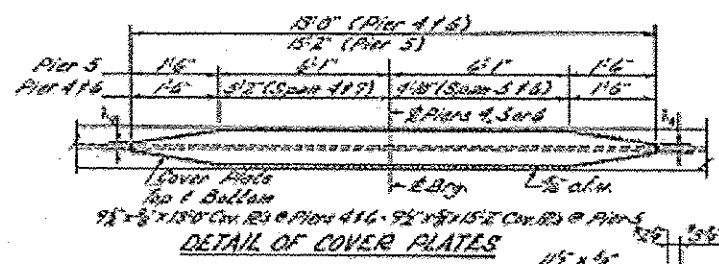 13'-0" (Pier 4 & 6)
15'-2" (Pier 5)
Pier 5 1'-6" 6'-1" 6'-1" 1'-6"
Pier 4 & 6 1'-6" 5'-2" (Span 4 & 7) 4'-10" (Span 5 & 6) 1'-6"
℄ Piers 4, 5 or 6
Cover Plate
Top & Bottom
℄ Brg.
13'-0" Cov. Pls @ Piers 4 & 6 - 15'-2" Cov. Pls @ Pier 5
DETAIL OF COVER PLATES